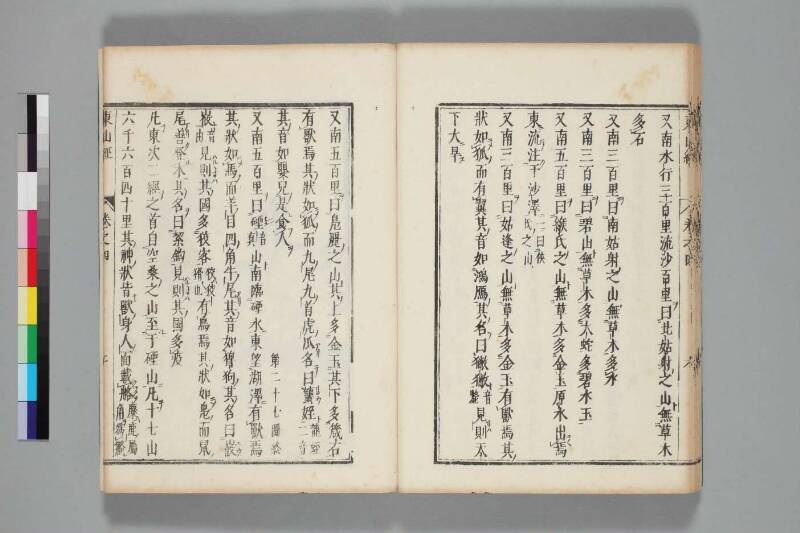 又南水行三百里流沙百里曰北姑射之山無草木
多石
又南三百里曰南姑射之山無草木多水
又南三百里曰碧山無草木多大蛇多碧水玉
又南五百里曰緱氏之山無草木多金玉原水出焉
東流注于沙澤 一曰俠氏之山
又南三百里曰姑逢之山無草木多金玉有獸焉其
狀如狐而有翼其音如鴻鴈其名曰獙獙 音斃 見則天
下大旱
又南五百里曰鳧麗之山其上多金玉其下多箴石
有獸焉其狀如狐而九尾九首虎爪名曰蠪姪 龍蛭二音
其音如嬰兒是食人
第二十七圖
又南五百里曰硜山 音 南臨硜水東望湖澤有獸焉
其狀如馬而羊目四角牛尾其音如獆狗其名曰峳
峳 音由 見則其國多狡客 狡猾也 有鳥焉其狀如鳧而鼠
尾善登木其名曰絜鉤見則其國多疫
凡東次二經之首自空桑之山至于硜山凡十七山
六千六百四十里其神狀皆獸身人面載觡 麋鹿屬角為觡
東山經 卷之四